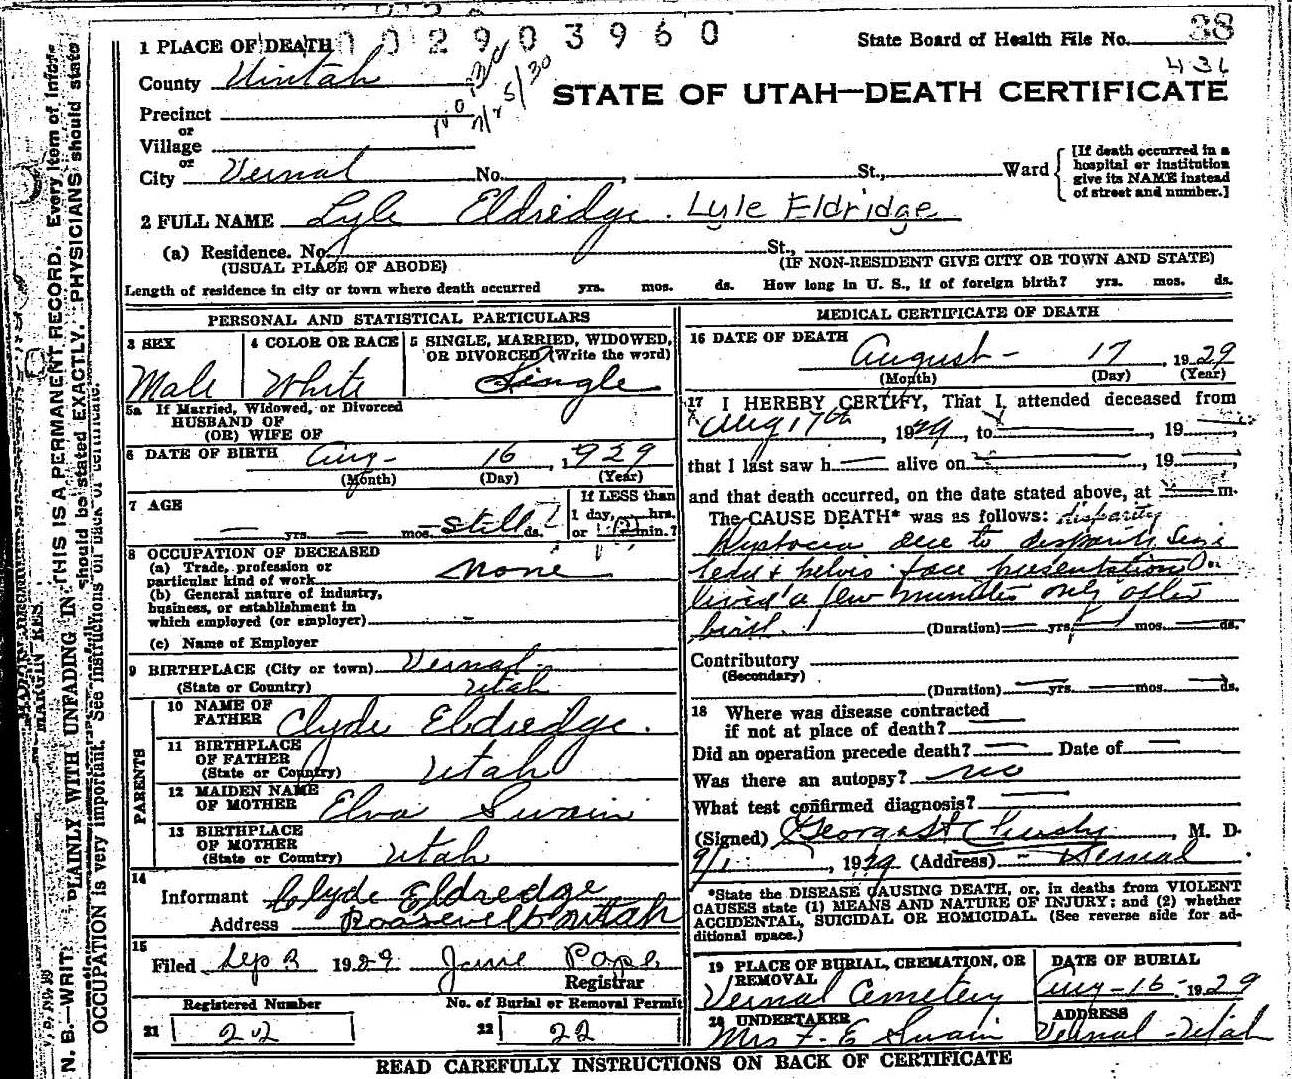 1 PLACE OF DEATH 002903960 State Board of Health File No. 38
436
County Uintah
STATE OF UTAH—DEATH CERTIFICATE
Precinct
or
Village
or
City Vernal No. , St., Ward
[If death occurred in a hospital or institution give its NAME instead of street and number.]
2 FULL NAME Lyle Eldredge. Lyle Eldridge
(a) Residence. No. St.,
(USUAL PLACE OF ABODE) (IF NON-RESIDENT GIVE CITY OR TOWN AND STATE)
Length of residence in city or town where death occurred yrs. mos. ds. How long in U. S., if of foreign birth? yrs. mos. ds.
PERSONAL AND STATISTICAL PARTICULARS
3 SEX 4 COLOR OR RACE 5 SINGLE, MARRIED, WIDOWED,
OR DIVORCED (Write the word)
Male White Single
5a If Married, Widowed, or Divorced
HUSBAND OF
(OR) WIFE OF
6 DATE OF BIRTH Aug- 16, 1929
(Month) (Day) (Year)
7 AGE If LESS than
1 day, hrs.
— yrs. — mos. Still ds. or min.?
8 OCCUPATION OF DECEASED
(a) Trade, profession or
particular kind of work None
(b) General nature of industry,
business, or establishment in
which employed (or employer)
(c) Name of Employer
9 BIRTHPLACE (City or town) Vernal
(State or Country) Utah
PARENTS
10 NAME OF
FATHER Clyde Eldredge.
11 BIRTHPLACE
OF FATHER
(State or Country) Utah
12 MAIDEN NAME
OF MOTHER Elva Swain
13 BIRTHPLACE
OF MOTHER
(State or Country) Utah
14
Informant Clyde Eldredge
Address Roosevelt Utah
15
Filed Sep 3 1929 Jane Pope
Registrar
Registered Number No. of Burial or Removal Permit
21 22 22 22
MEDICAL CERTIFICATE OF DEATH
16 DATE OF DEATH
August - 17, 1929
(Month) (Day) (Year)
17 I HEREBY CERTIFY, That I attended deceased from
Aug 17th, 1929, to , 19
that I last saw h alive on , 19
and that death occurred, on the date stated above, at m.
The CAUSE DEATH* was as follows: disparity
Dystocia due to disparity size
head & pelvis. face presentation
lived a few minutes only after
birth. (Duration) yrs. mos. ds.
Contributory
(Secondary)
(Duration) yrs. mos. ds.
18 Where was disease contracted
if not at place of death?
Did an operation precede death? — Date of —
Was there an autopsy? no
What test confirmed diagnosis?
(Signed) , M. D.
9/1 , 1929 (Address) - Vernal
*State the DISEASE CAUSING DEATH, or, in deaths from VIOLENT
CAUSES state (1) MEANS AND NATURE OF INJURY; and (2) whether
ACCIDENTAL, SUICIDAL OR HOMICIDAL. (See reverse side for ad-
ditional space.)
19 PLACE OF BURIAL, CREMATION, OR
REMOVAL
Vernal Cemetery
DATE OF BURIAL
Aug-16-1929
20 UNDERTAKER
Mrs F. E Swain
ADDRESS
Vernal - Utah
READ CAREFULLY INSTRUCTIONS ON BACK OF CERTIFICATE
N. B.—WRITE PLAINLY WITH UNFADING INK—THIS IS A PERMANENT RECORD. Every item of infor-
should be stated EXACTLY. PHYSICIANS should state
OCCUPATION is very important. See instructions on back of certificate.